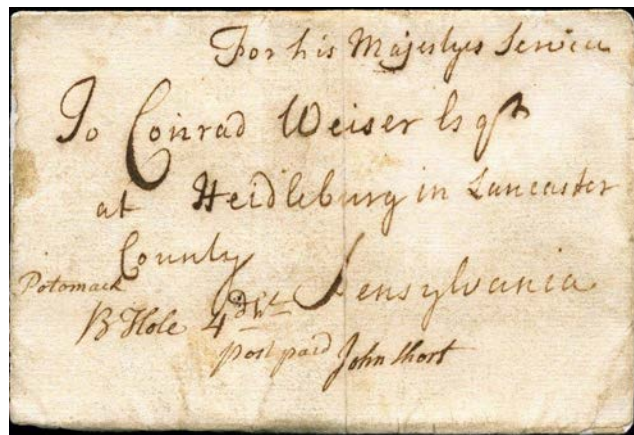 For his Majestyes Service
To Conrad Weiser Esqr
at Heidleburg in Lancaster
County Pensylvania
Potomack
B Hole 4 dwt
post paid John Short